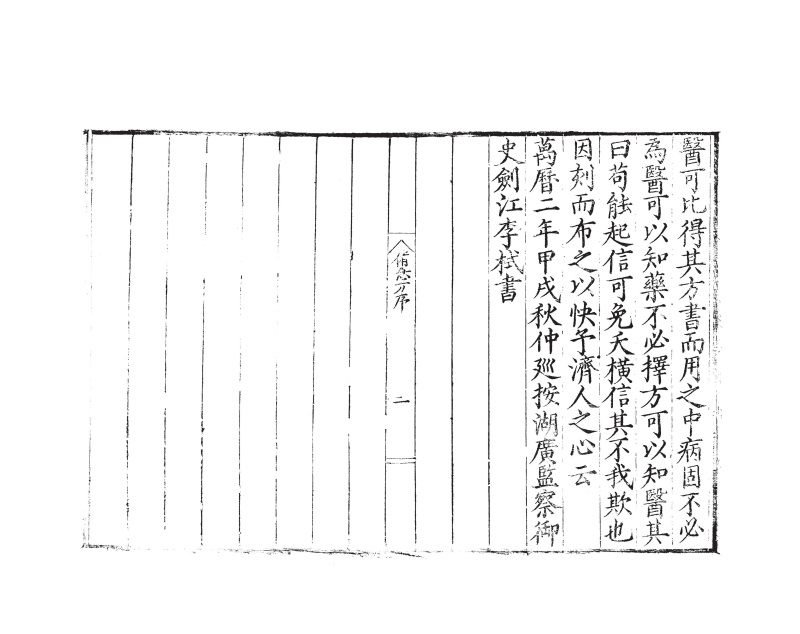 醫可比得其方書而用之中病固不必
為醫可以知藥不必擇方可以知醫其
曰苟能起信可免夭橫信其不我欺也
因刻而布之以快予濟人之心云
萬曆二年甲戌秋仲廵按湖廣監察御
史劍江李栻書
備急方序
二